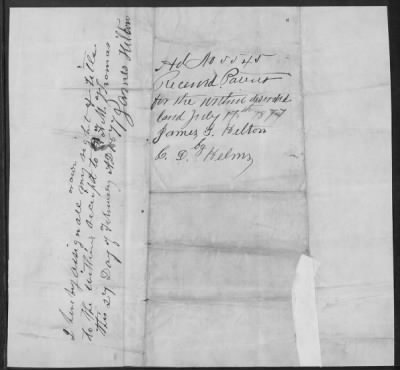 Ad No 5545
Received Patent
for the within described
land July 17th 1877
James F. Hilton
by
C. D. Helm
I hereby assign all my right & title
to the within receipt to M. Thomas
this 27 Day of February AD 1877
James Hilton